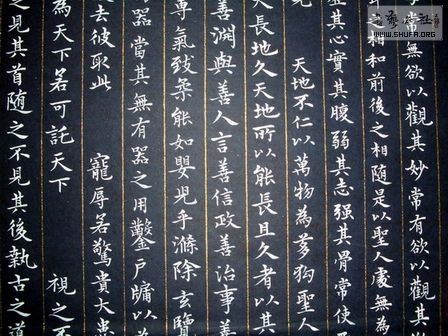 常無欲以觀其妙常有欲以觀其
之相和前後之相随是以聖人處無為
虛其心實其腹弱其志强其骨常使
天地不仁以萬物為芻狗聖人
長地久天地所以能長且久者以其
善淵與善人言善信政善治事善
專氣致柔能如嬰兒乎滌除玄覽
器當其無有器之用鑿戶牖以
去彼取此 寵辱若驚貴大患
為天下若可託天下 視之不
之見其首随之不見其後執古之道
WWW.SHUFA.ORG